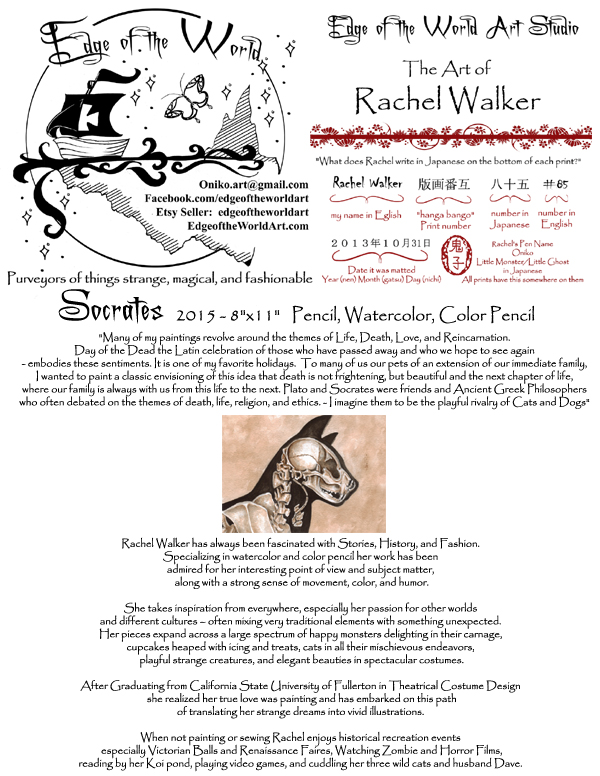 Edge of the World
Oniko.art@gmail.com
Facebook.com/edgeoftheworldart
Etsy Seller: edgeoftheworldart
EdgeoftheWorldArt.com
Purveyors of things strange, magical, and fashionable
Edge of the World Art Studio
The Art of
Rachel Walker
"What does Rachel write in Japanese on the bottom of each print?"
Rachel Walker 版画番五 八十五 #85
my name in Eglish "hanga bango" Print number number in Japanese number in English
2013年10月31日 鬼子
Date it was matted
Year (nen) Month (gatsu) Day (nichi)
Rachel's Pen Name
Oniko
Little Monster/Little Ghost
in Japanese
All prints have this somewhere on them
Socrates 2015 - 8"x11" Pencil, Watercolor, Color Pencil
"Many of my paintings revolve around the themes of Life, Death, Love, and Reincarnation.
Day of the Dead the Latin celebration of those who have passed away and who we hope to see again
- embodies these sentiments. It is one of my favorite holidays. To many of us our pets of an extension of our immediate family,
I wanted to paint a classic envisioning of this idea that death is not frightening, but beautiful and the next chapter of life,
where our family is always with us from this life to the next. Plato and Socrates were friends and Ancient Greek Philosophers
who often debated on the themes of death, life, religion, and ethics. - I imagine them to be the playful rivalry of Cats and Dogs"
Rachel Walker has always been fascinated with Stories, History, and Fashion.
Specializing in watercolor and color pencil her work has been
admired for her interesting point of view and subject matter,
along with a strong sense of movement, color, and humor.
She takes inspiration from everywhere, especially her passion for other worlds
and different cultures – often mixing very traditional elements with something unexpected.
Her pieces expand across a large spectrum of happy monsters delighting in their carnage,
cupcakes heaped with icing and treats, cats in all their mischievous endeavors,
playful strange creatures, and elegant beauties in spectacular costumes.
After Graduating from California State University of Fullerton in Theatrical Costume Design
she realized her true love was painting and has embarked on this path
of translating her strange dreams into vivid illustrations.
When not painting or sewing Rachel enjoys historical recreation events
especially Victorian Balls and Renaissance Faires, Watching Zombie and Horror Films,
reading by her Koi pond, playing video games, and cuddling her three wild cats and husband Dave.